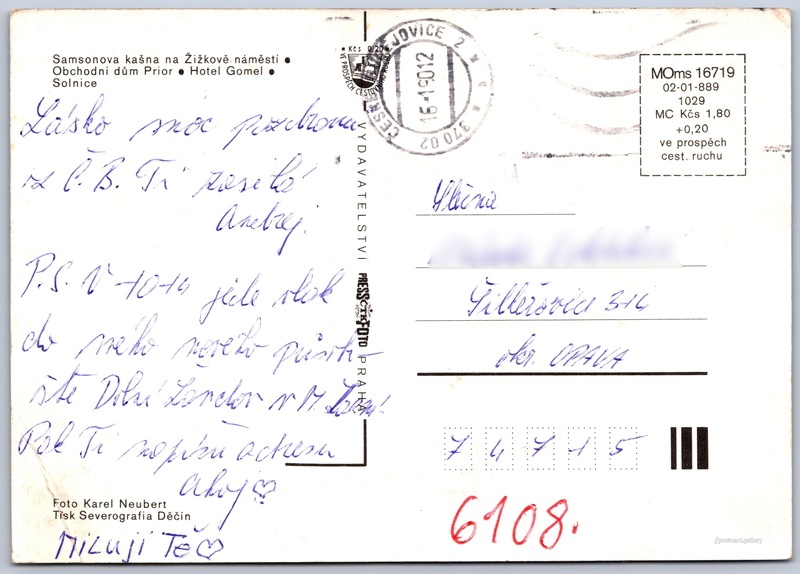 Samsonova kašna na Žižkově náměstí ●
Obchodní dům Prior ● Hotel Gomel ●
Solnice
Lásko moc pozdravu
z Č. B. Ti zasílá
Andrej.
P.S. V 1014 jede vlak
do mého nového působi-
ště Dolní Žandov v M. Lázní
Pak Ti napíšu adresu
ahoj
Foto Karel Neubert
Tisk Severografia Děčín
Miluji Tě
Kčs 0,20
VE PROSPĚCH CESTOVNÍHO RUCHU
VYDAVATELSTVÍ PRESSFOTO PRAHA
ČTK
ČESKÉ BUDĚJOVICE 2
370 02
16-1 90 12
MOms 16719
02-01-889
1029
MC Kčs 1,80
+0,20
ve prospěch
cest. ruchu
Slečna
Šilheřovice 314
okr. OPAVA
74715
6108.